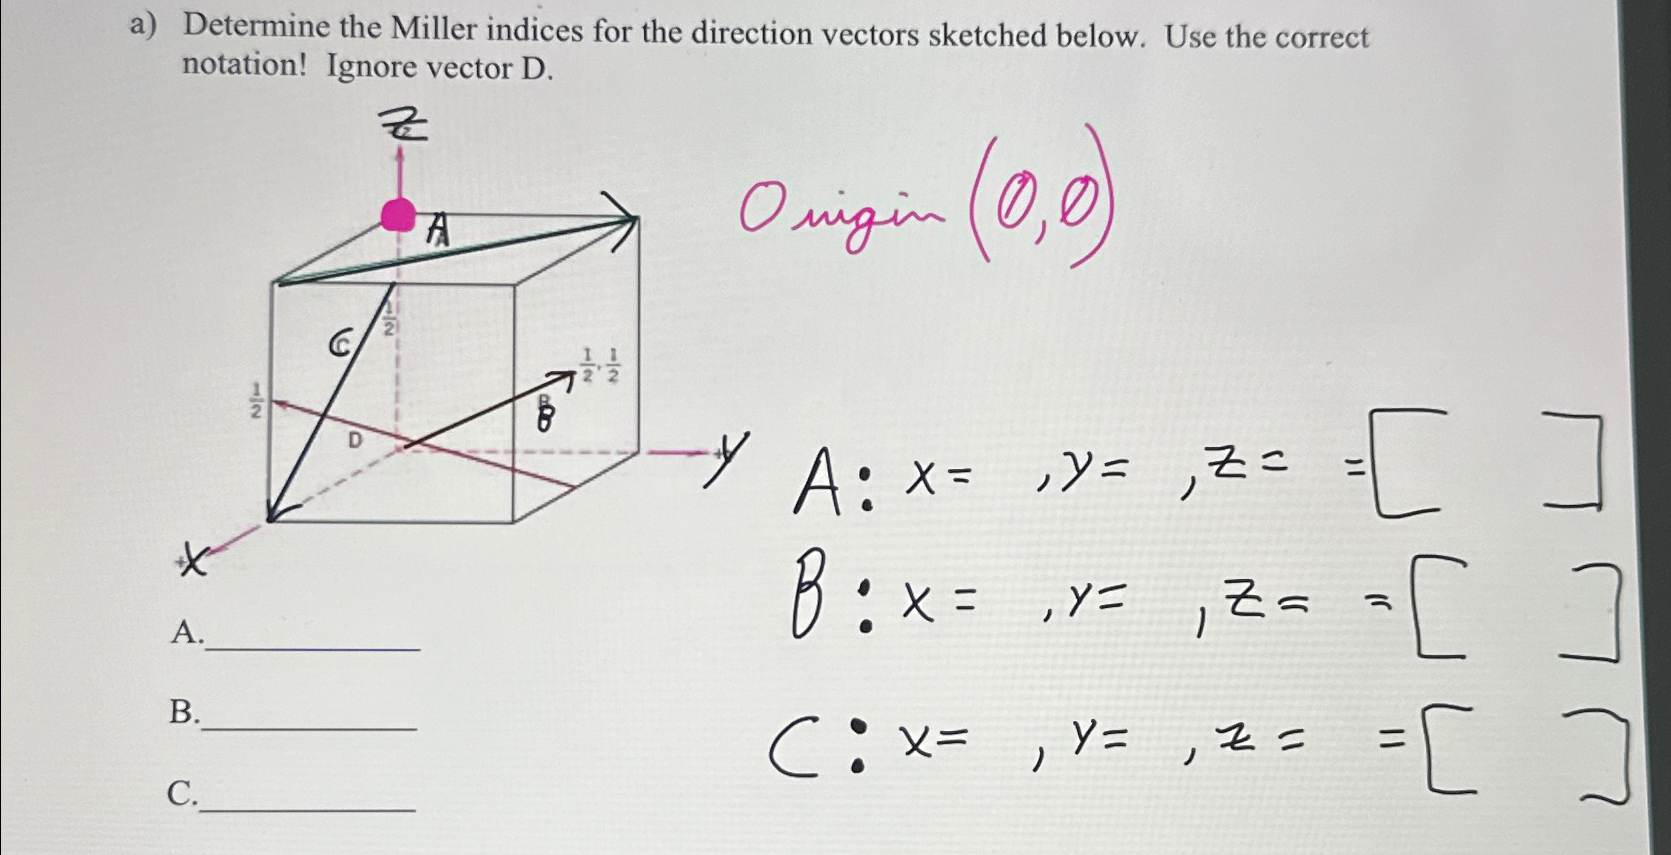 a) Determine the Miller indices for the direction vectors sketched below. Use the correct
notation! Ignore vector D.
Z
A
Origin (0,0)
C
1/2
1/2, 1/2
1/2
B
D
+y
A: x= , y= , z= =[ ]
+x
B: x= , y= , z= =[ ]
A.
B.
C: x= , y= , z= =[ ]
C.